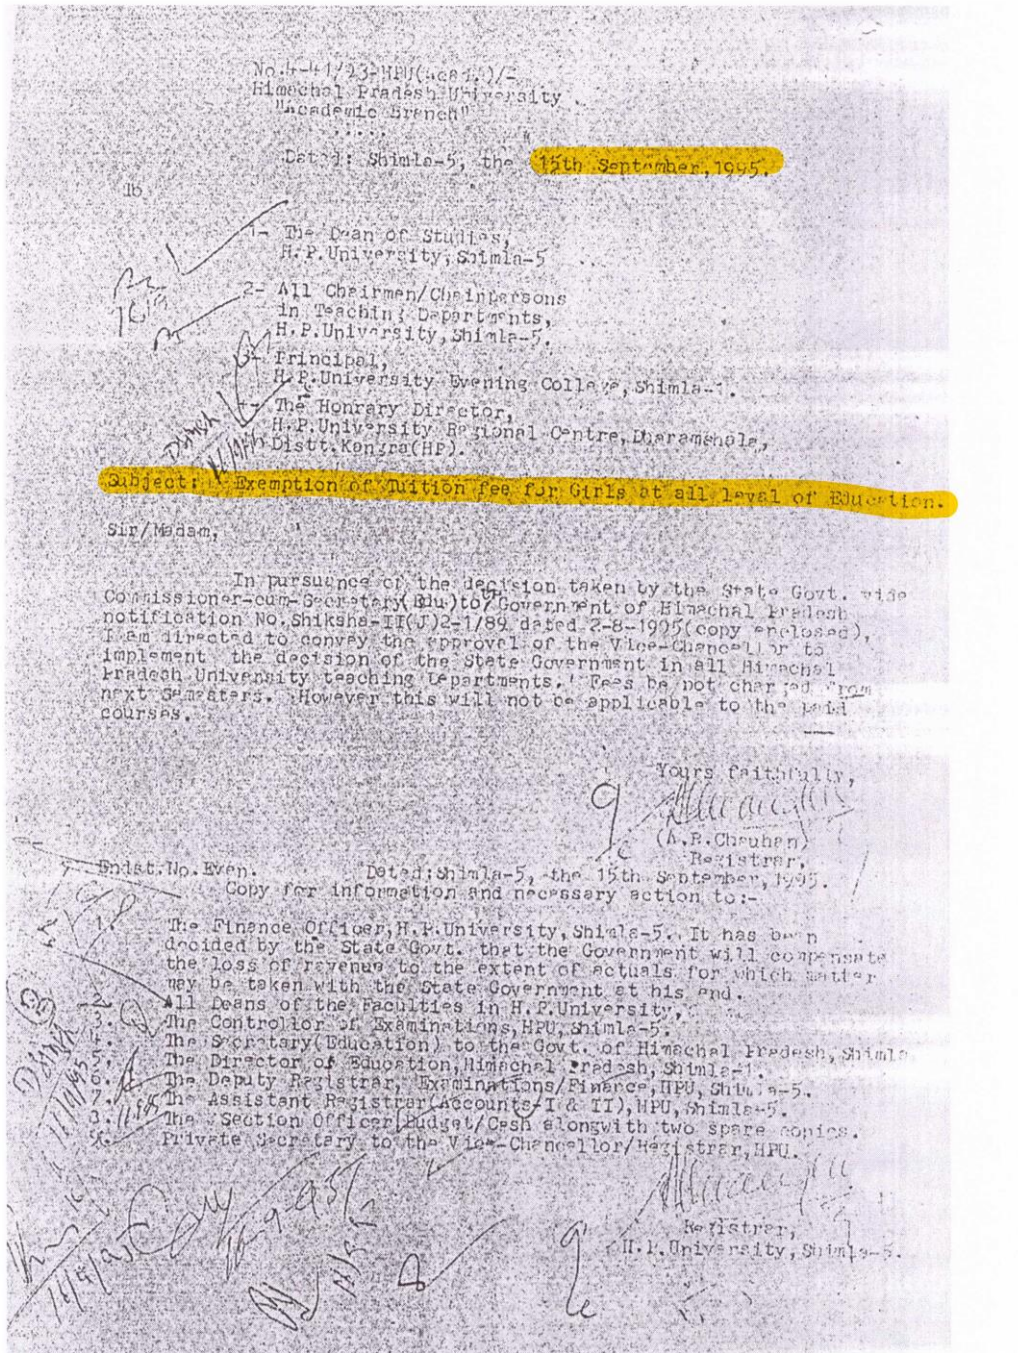 No.4-41/93-HPU(Acad.)/-
Himachal Pradesh University
"Academic Branch"
.....
Dated: Shimla-5, the 15th September,1995.
To
1- The Dean of Studies,
H.P.University,Shimla-5
2- All Chairmen/Chairpersons
in Teaching Departments,
H.P.University,Shimla-5.
3- Principal,
H.P.University Evening College,Shimla-1.
4- The Honrary Director,
H.P.University Regional Centre,Dharamshala,
Distt.Kangra(HP).
Subject: Exemption of Tuition fee for Girls at all level of Education.
Sir/Madam,
In pursuance of the decision taken by the State Govt. vide
Commissioner-cum-Secretary(Edu)to the Government of Himachal Pradesh
notification No.Shiksha-II(J)2-1/89 dated 2-8-1995(copy enclosed),
I am directed to convey the approval of the Vice-Chancellor to
implement the decision of the State Government in all Himachal
Pradesh University teaching Departments. Fees be not charged from
next Semesters. However this will not be applicable to the paid
courses.
Yours faithfully,
(A.R.Chauhan)
Registrar,
Endst.No.Even. Dated:Shimla-5, the 15th September,1995.
Copy for information and necessary action to:-
The Finance Officer,H.P.University,Shimla-5. It has been
decided by the State Govt. that the Government will compensate
the loss of revenue to the extent of actuals for which matter
may be taken with the State Government at his end.
2. All Deans of the Faculties in H.P.University,
3. The Controllor of Examinations,HPU,Shimla-5.
4. The Secretary(Education) to the Govt. of Himachal Pradesh,Shimla
5. The Director of Education,Himachal Pradesh,Shimla-1.
6. The Deputy Registrar, Examinations/Finance,HPU,Shimla-5.
7. The Assistant Registrar(Accounts-I & II),HPU,Shimla-5.
8. The Section Officer Budget/Cash alongwith two spare copies.
9. Private Secretary to the Vice-Chancellor/Registrar,HPU.
Registrar,
H.P.University,Shimla-5.